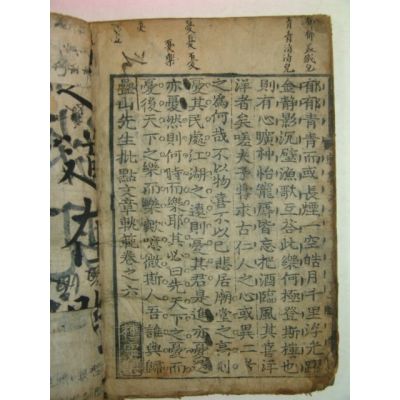 郁郁青青而或長煙一空皓月千里浮光躍
金静影沉璧漁歌互答此樂何極登斯樓也
則有心曠神怡寵辱皆忘把酒臨風其喜洋
洋者矣嗟夫予甞求古仁人之心或異二者
之爲何哉不以物喜不以己悲居廟堂之高則
憂其民處江湖之遠則憂其君是進亦憂退
亦憂然則何時而樂耶其必曰先天下之憂而
憂後天下之樂而樂歟噫微斯人吾誰與歸
疊山先生批點文章軌範卷之六
憂樂